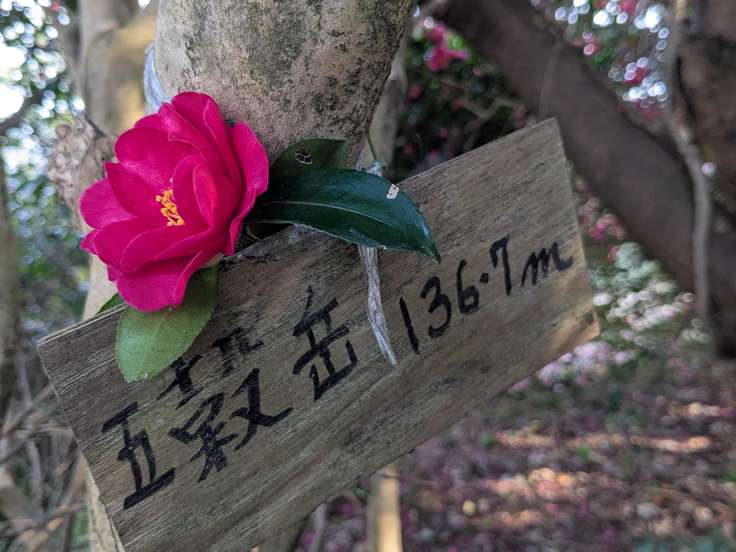 五穀岳 136.7m